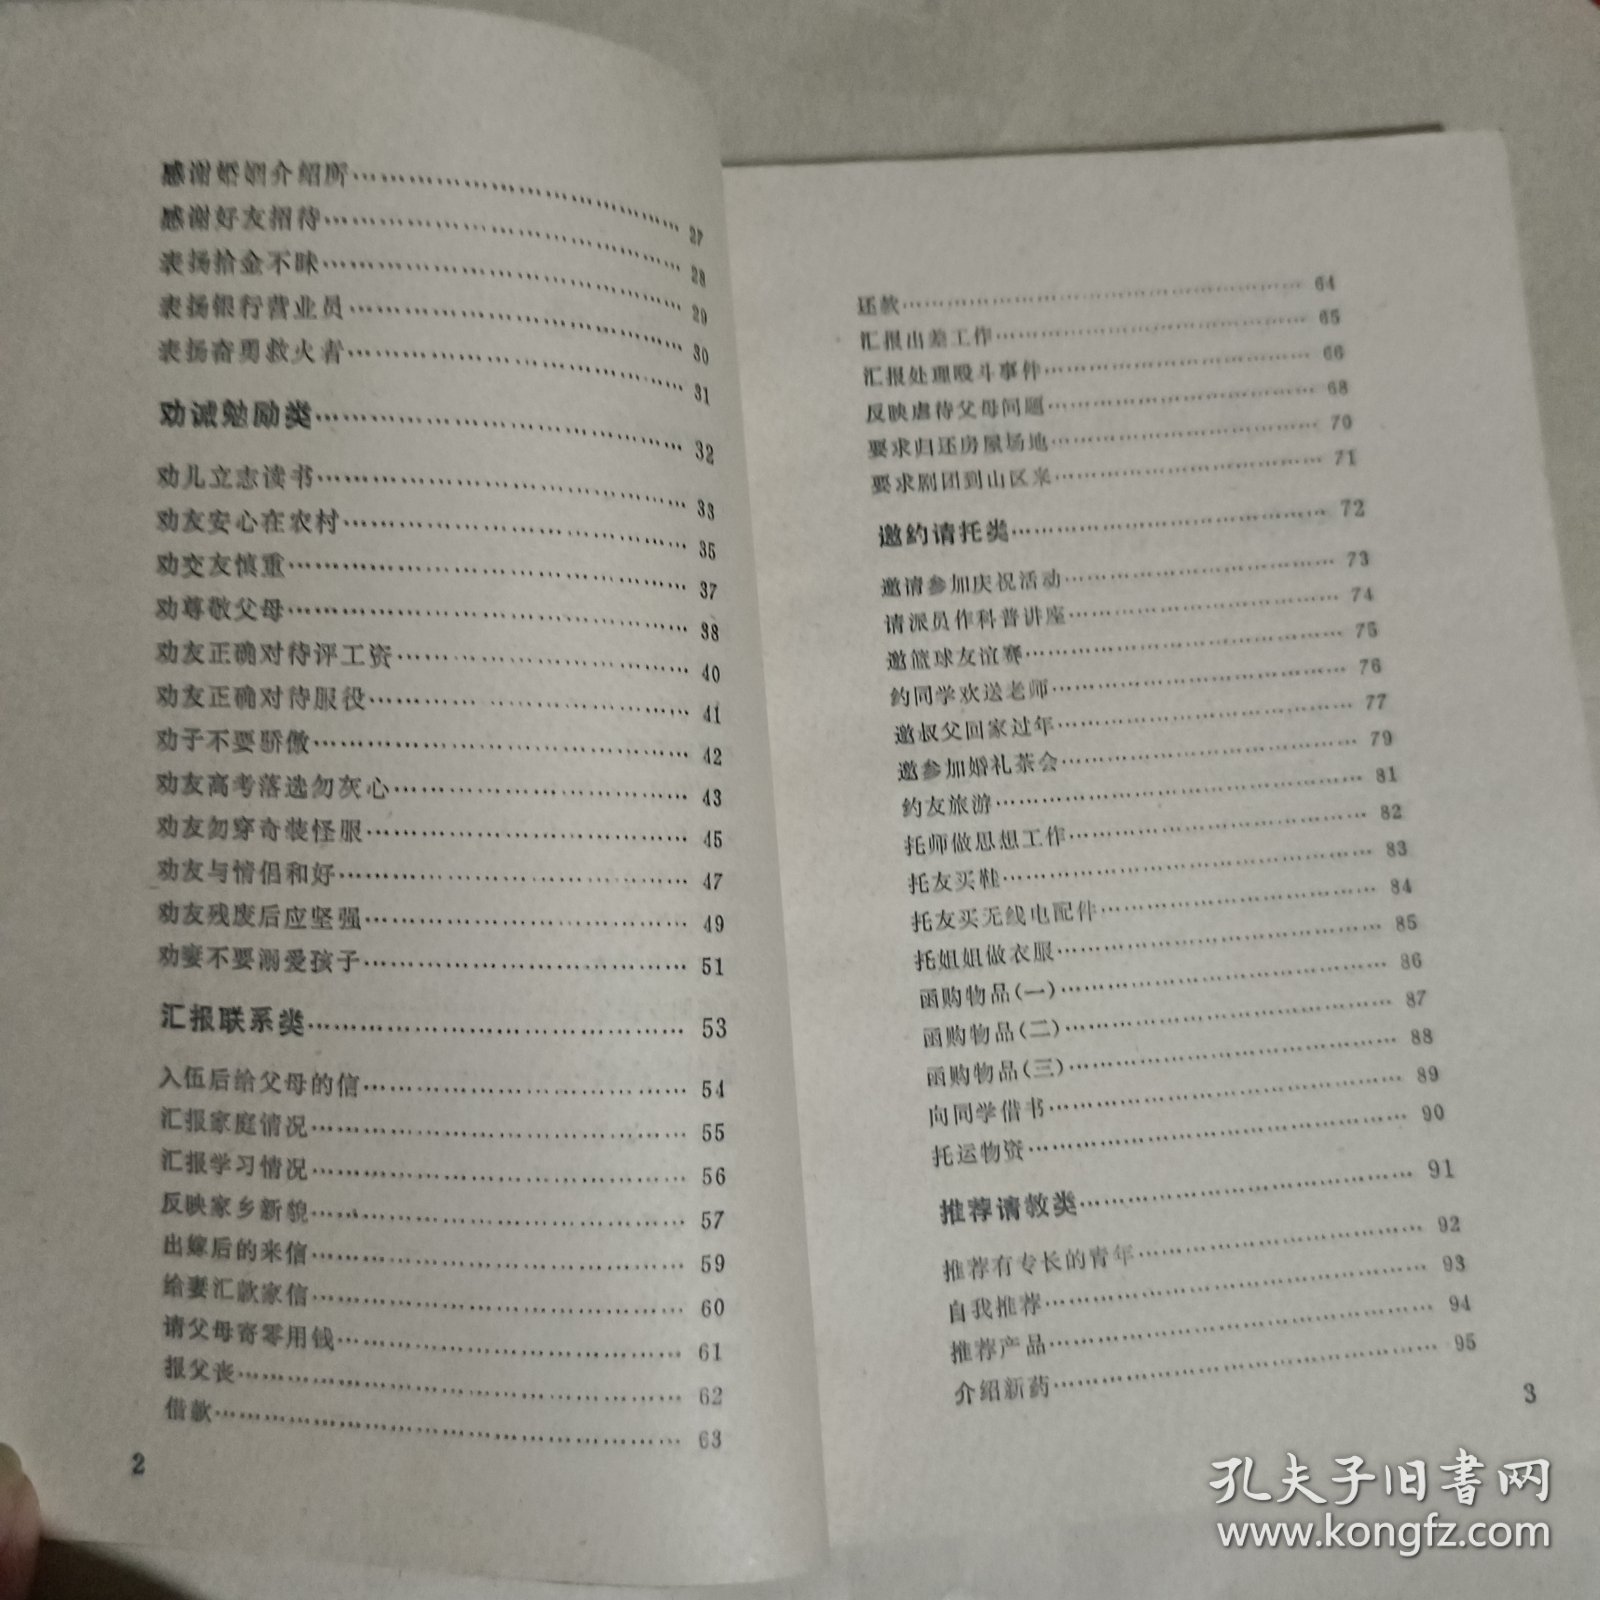 感谢婚姻介绍所 27
感谢好友招待 28
表扬拾金不昧 29
表扬银行营业员 30
表扬奋勇救火者 31
劝诫勉励类 32
劝儿立志读书 33
劝友安心在农村 35
劝交友慎重 37
劝尊敬父母 38
劝友正确对待评工资 40
劝友正确对待服役 41
劝子不要骄傲 42
劝友高考落选勿灰心 43
劝友勿穿奇装怪服 45
劝友与情侣和好 47
劝友残废后应坚强 49
劝妻不要溺爱孩子 51
汇报联系类 53
入伍后给父母的信 54
汇报家庭情况 55
汇报学习情况 56
反映家乡新貌 57
出嫁后的来信 59
给妻汇款家信 60
请父母寄零用钱 61
报父丧 62
借款 63
2
还款 64
汇报出差工作 65
汇报处理殴斗事件 66
反映虐待父母问题 68
要求归还房屋场地 70
要求剧团到山区来 71
邀约请托类 72
邀请参加庆祝活动 73
请派员作科普讲座 74
邀篮球友谊赛 75
约同学欢送老师 76
邀叔父回家过年 77
邀参加婚礼茶会 79
约友旅游 81
托师做思想工作 82
托友买鞋 83
托友买无线电配件 84
托姐姐做衣服 85
函购物品(一) 86
函购物品(二) 87
函购物品(三) 88
向同学借书 89
托运物资 90
推荐请教类 91
推荐有专长的青年 92
自我推荐 93
推荐产品 94
介绍新药 95
3
孔夫子旧书网
www.kongfz.com